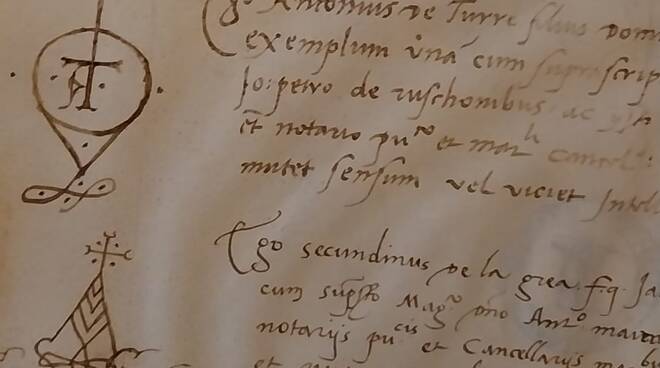 AT
Ego Antonius de Turre filius dom
exemplum unā cum suprascrip
Jo: petro de ruschonibus ac
et notario pu.co et mar.li Cancel
mutet sensum vel viciet Intel
Ego secundinus de la grea f.q. Ja
cum sup.to Mag.co dno Ant.o
notarijs pu.cis et Cancellarijs
et